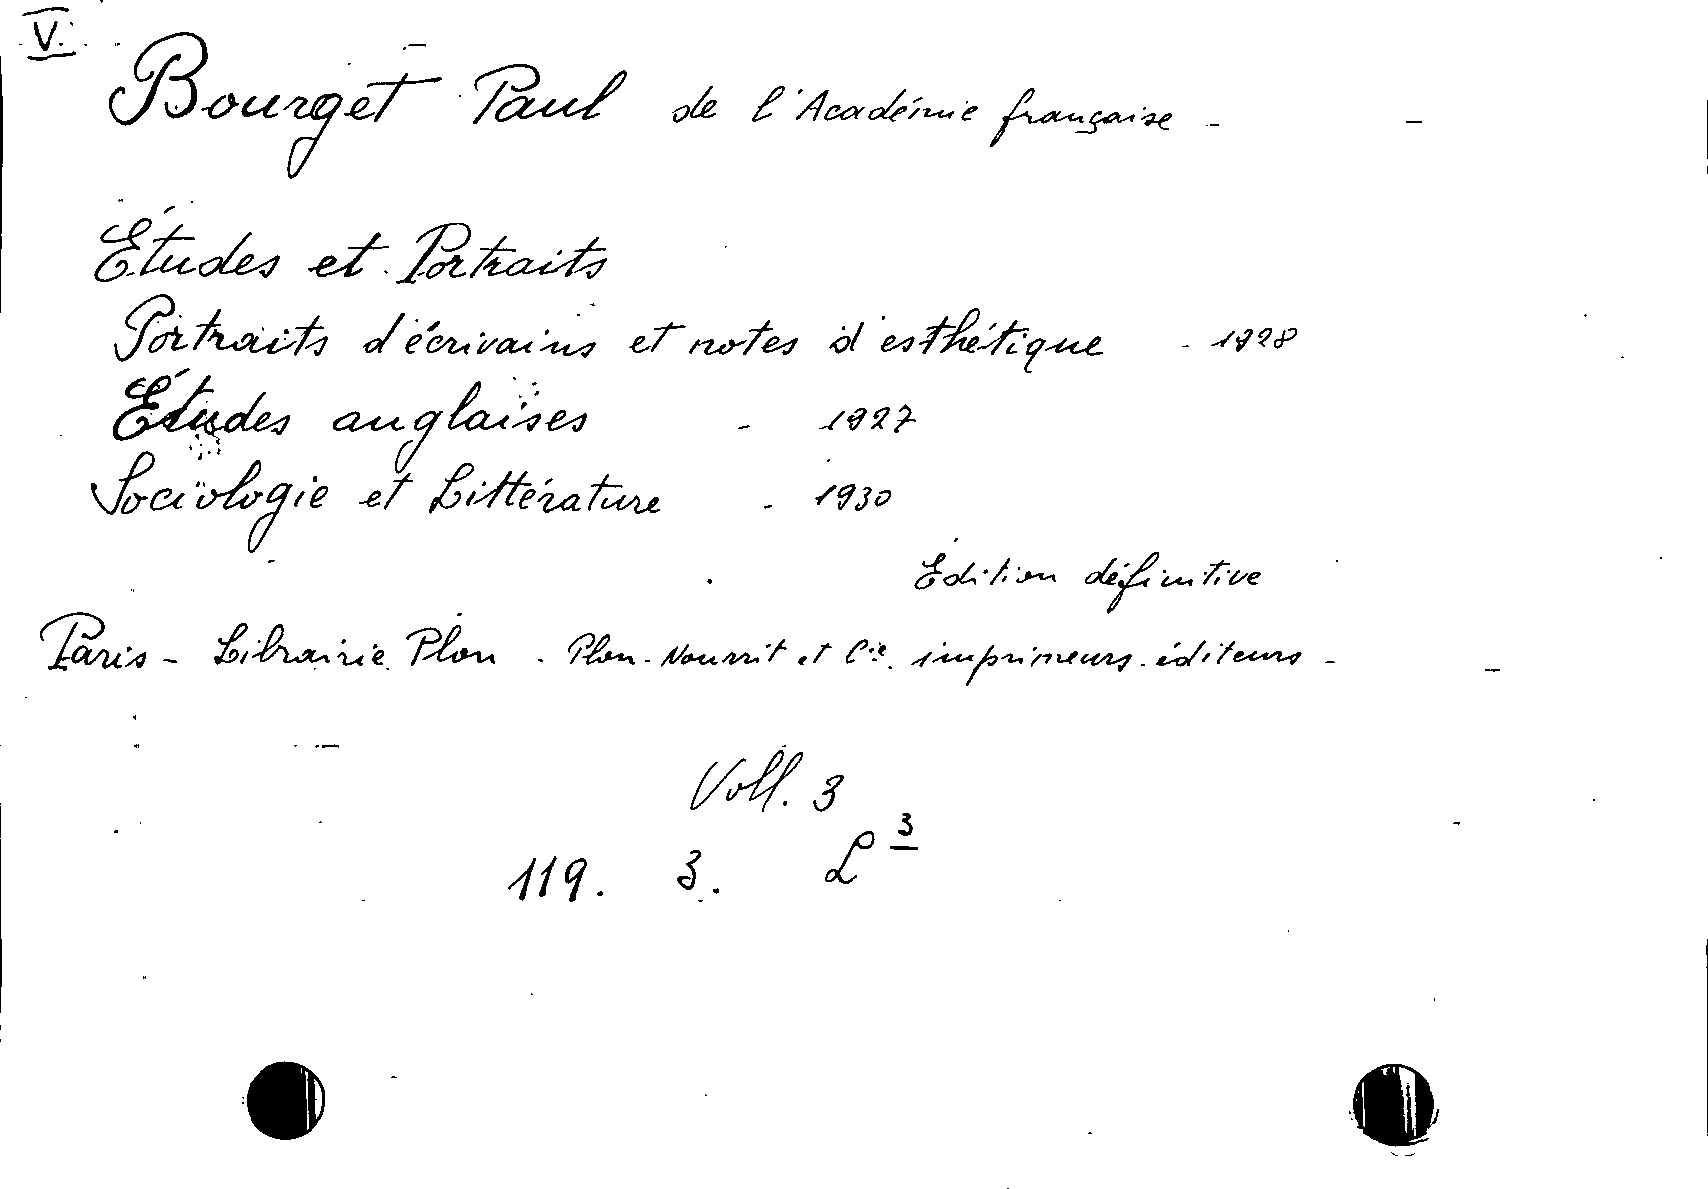 V.
Bourget Paul de l'Académie française -
Études et Portraits
Portraits d'écrivains et notes d'esthétique - 1928
Études anglaises - 1927
Sociologie et Littérature - 1930
Édition définitive
Paris - Librairie Plon - Plon-Nourrit et Cie. imprimeurs-éditeurs -
Voll. 3
119. 3. L 3